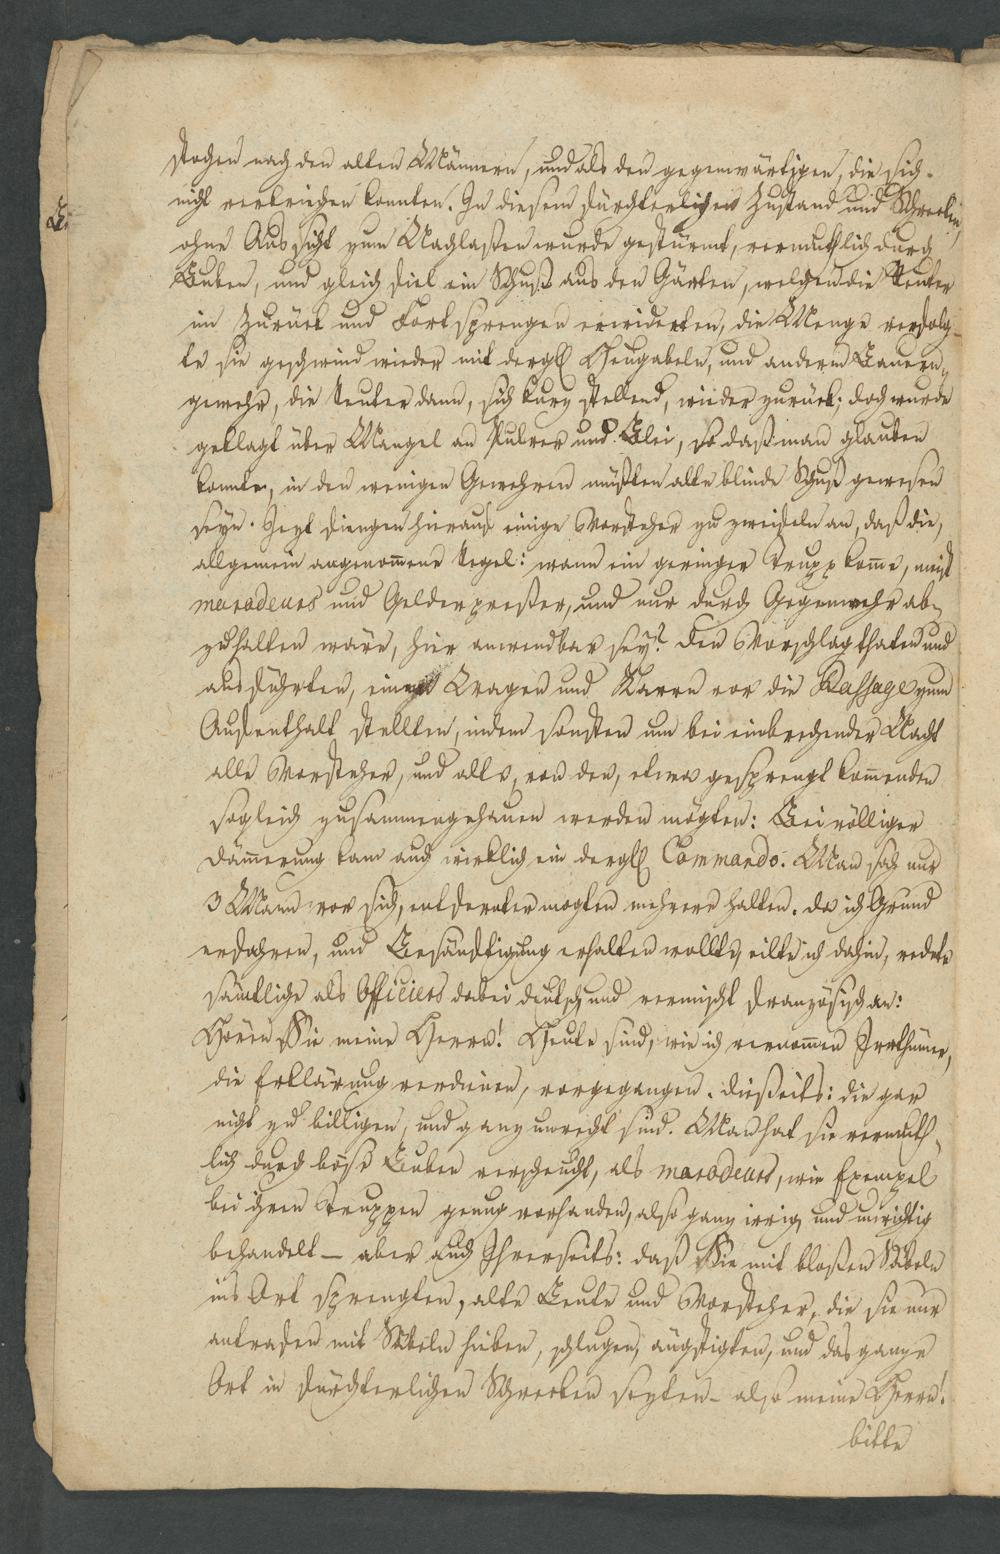 stachen nach den alten Männern, und als den gegenwärtigen, die sich
nicht verkriechen konnten. In diesem fürchterlichen Zustand und Schrecken,
ohne Aussicht zum Nachlassen wurde gestürmt, vermuthlich durch
Buben, und gleich fiel ein Schuß aus den Gärten, welchen die Reuter
im Zurück und Fortsprengen erwiderten, die Menge verfolg-
te sie geschwind wieder mit dergl. Heugabeln, und anderm Bauern-
gewehr, die Reuter dann, sich kurz stellend, wieder zurück; doch wurde
geklagt über Mangel an Pulver und Blei, so daß man glauben
konnte, in den wenigen Gewehren müßten alte blinde Schuß gewesen
seyn. Jezt fiengen hierauf einige Vorsteher zu zweifeln an, daß die,
allgemein angenomene Regel: wann ein geringer Trupp kome, meist
maradeurs und Gelderpresser, und nur durch Gegenwehr ab-
zuhalten wäre, hier anwendbar sey? Den Vorschlag thaten und
ausführten, einen Wagen und Karrn vor die Passage zum
Aufenthalt stellten, indem sonsten um bei einbrechender Nacht
alle Vorsteher, und alles, von den, etwa gesprengt komenden
sogleich zusammengehauen werden mögten: Bei völliger
Dämerung kam auch wirklich ein dergl. Commando. Man sah nur
3 Mann vor sich, entfernter mogten mehrere halten. Da ich Grund
erfahren, und Besänftigung erhalten wollte, eilte ich dahin, redete
sämtliche als Officiers dabei deutsch und vermischt französisch an:
Hören Sie meine Herrn! Heute sind, wie ich vernomen Irrthümer,
die Erklärung verdienen, vorgegangen. Dießeits: die gar
nicht zu billigen, und ganz unrecht sind. Man hat sie vermuth-
lich durch böse Buben verscheucht, als maradeurs, wie Exempel
bei ihren Truppen genug vorhanden, also ganz irrig und unrichtig
behandelt – aber auch Ihrerseits: daß Sie mit bloßen Säbeln
ins Ort sprengten, alte Leute und Vorsteher, die sie nur
antrafen mit Säbeln hieben, schlugen, ängstigten, und das ganze
Ort in fürchterlichen Schrecken sezten – also meine Herrn!
bitte